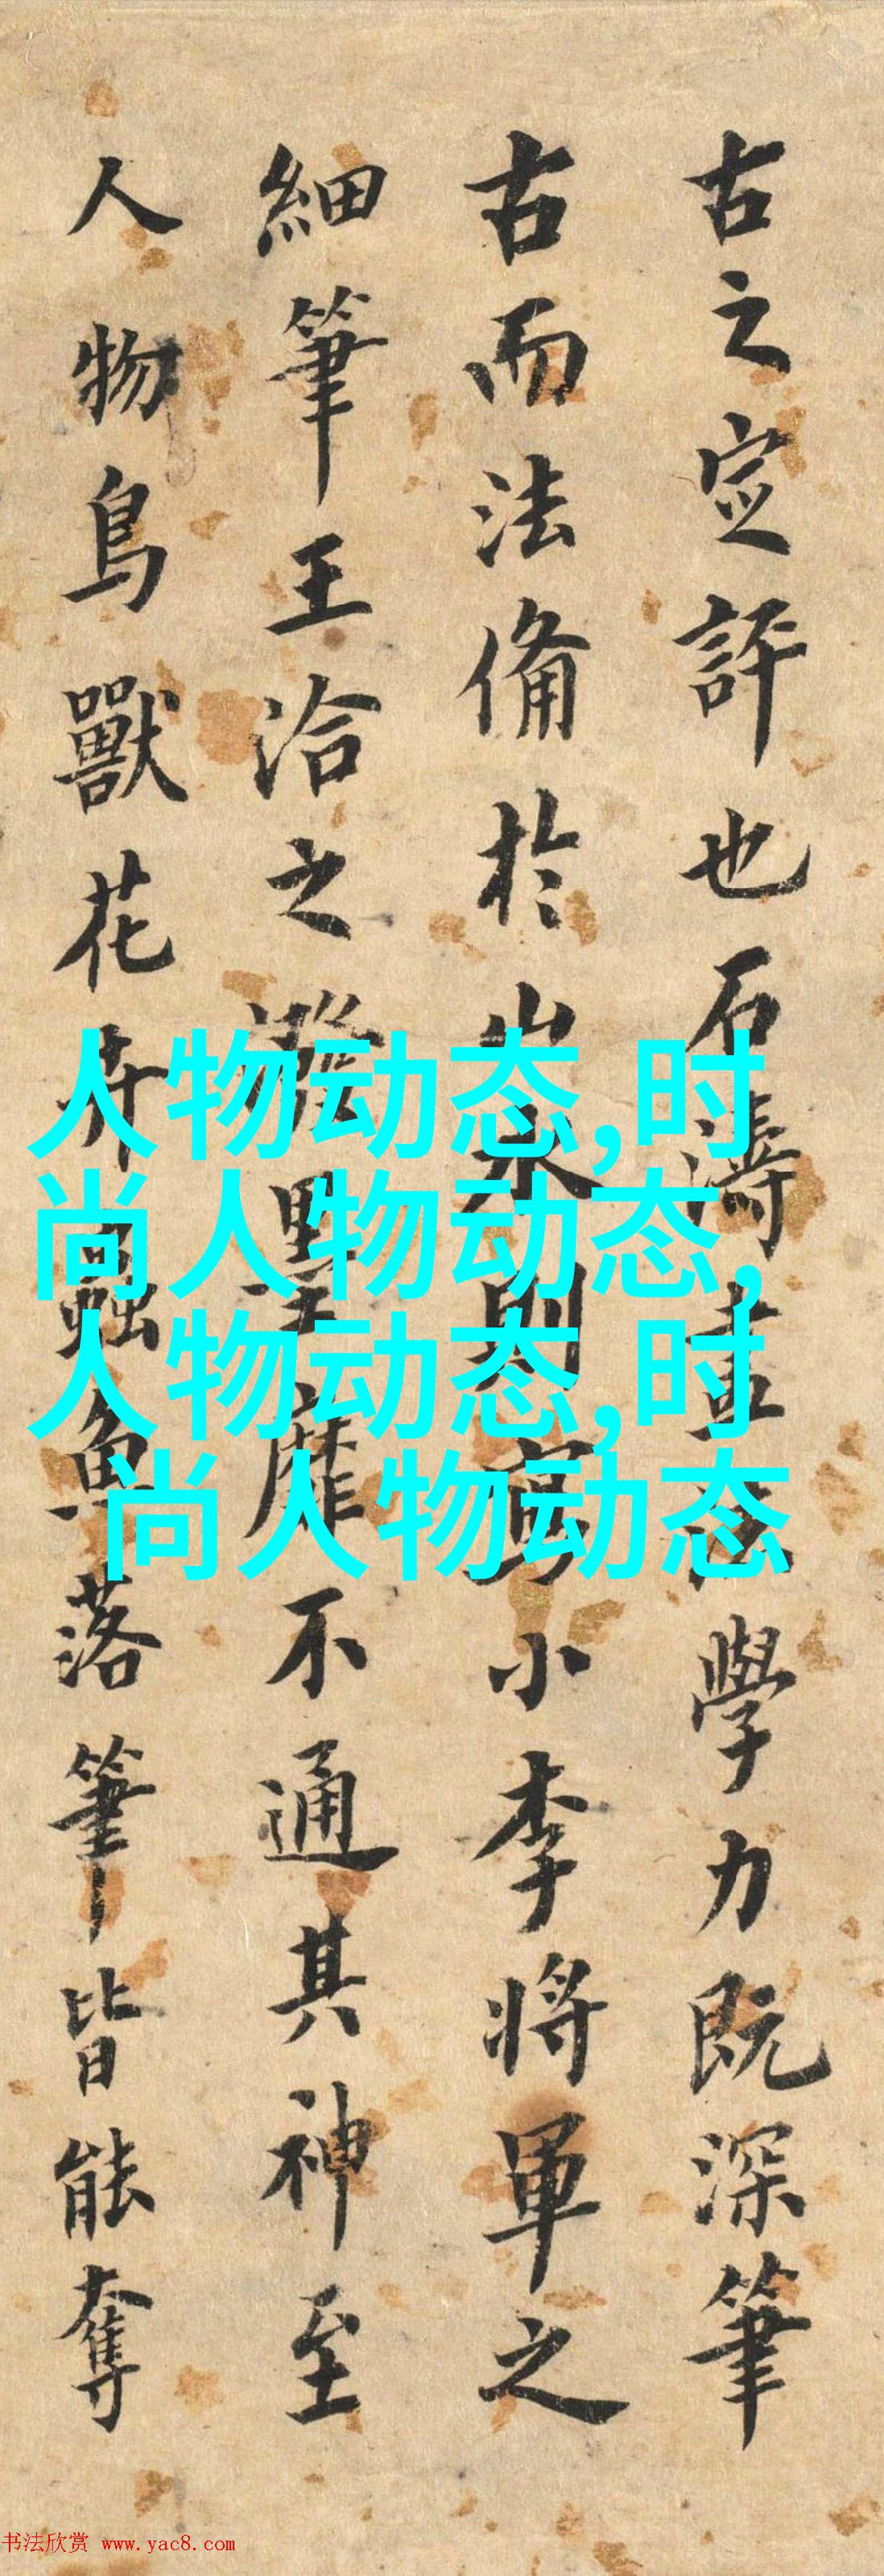 古之定評也石濤畫法學力既深筆
古而法備於山水則寫小李將軍之
細筆王洽之潑墨靡不通其神至
人物鳥獸花卉蟲魚落筆皆能奪
人物动态,时
尚人物动态,
人物动态,时
尚人物动态
书法欣赏 www.yac8.com